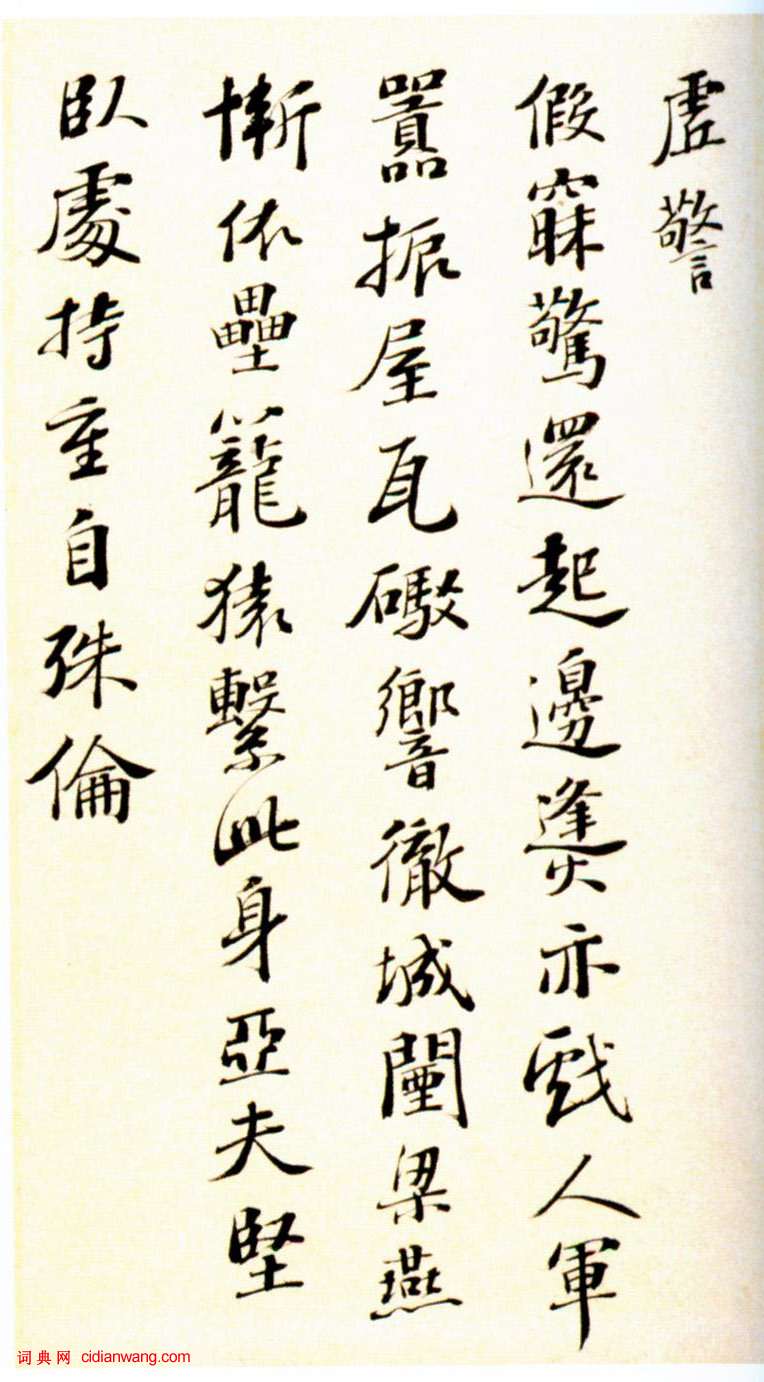 虛警
假寐驚還起邊㷭亦戲人軍
囂振屋瓦礮響徹城闉梁燕
慚依壘籠猿繫此身亞夫堅
臥處持重自殊倫
词典网 cidianwang.com